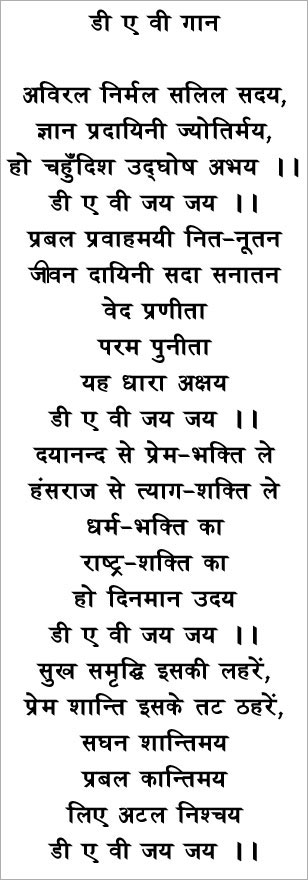 डी ए वी गान
अविरल निर्मल सलिल सदय,
ज्ञान प्रदायिनी ज्योतिर्मय,
हो चहुँदिश उद्घोष अभय ।।
डी ए वी जय जय ।।
प्रबल प्रवाहमयी नित-नूतन
जीवन दायिनी सदा सनातन
वेद प्रणीता
परम पुनीता
यह धारा अक्षय
डी ए वी जय जय ।।
दयानन्द से प्रेम-भक्ति ले
हंसराज से त्याग-शक्ति ले
धर्म-भक्ति का
राष्ट्र-शक्ति का
हो दिनमान उदय
डी ए वी जय जय ।।
सुख समृद्धि इसकी लहरें,
प्रेम शान्ति इसके तट ठहरें,
सघन शान्तिमय
प्रबल कान्तिमय
लिए अटल निश्चय
डी ए वी जय जय ।।